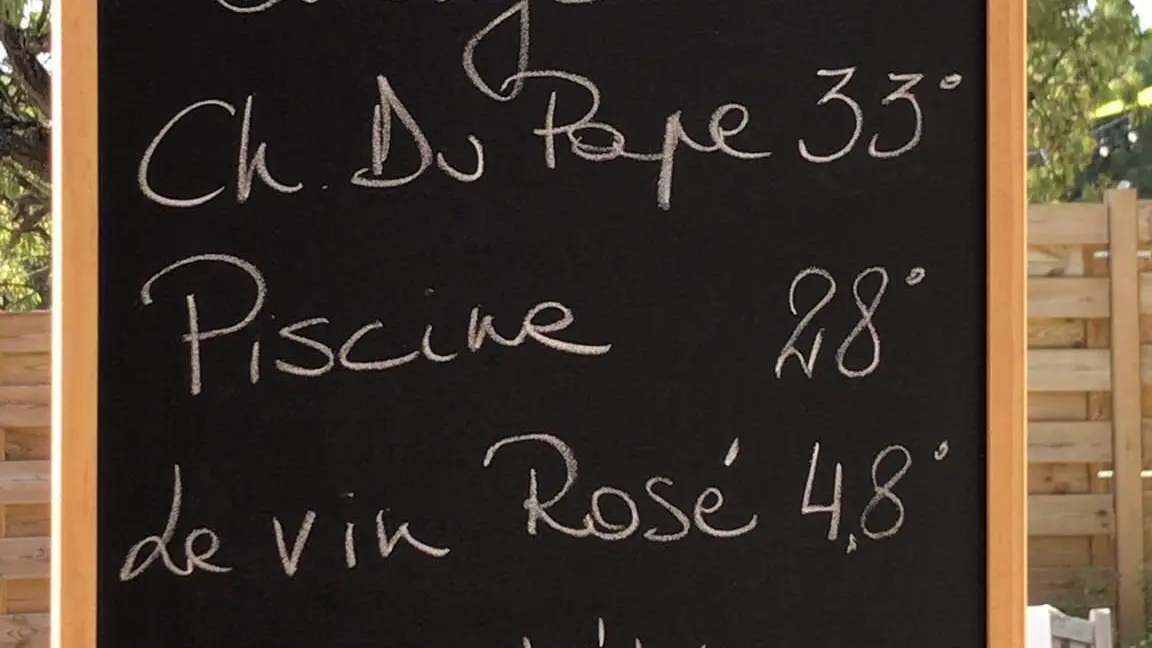 Ch. Du Pape 33°
Piscine 28°
Le vin Rosé 4,8°